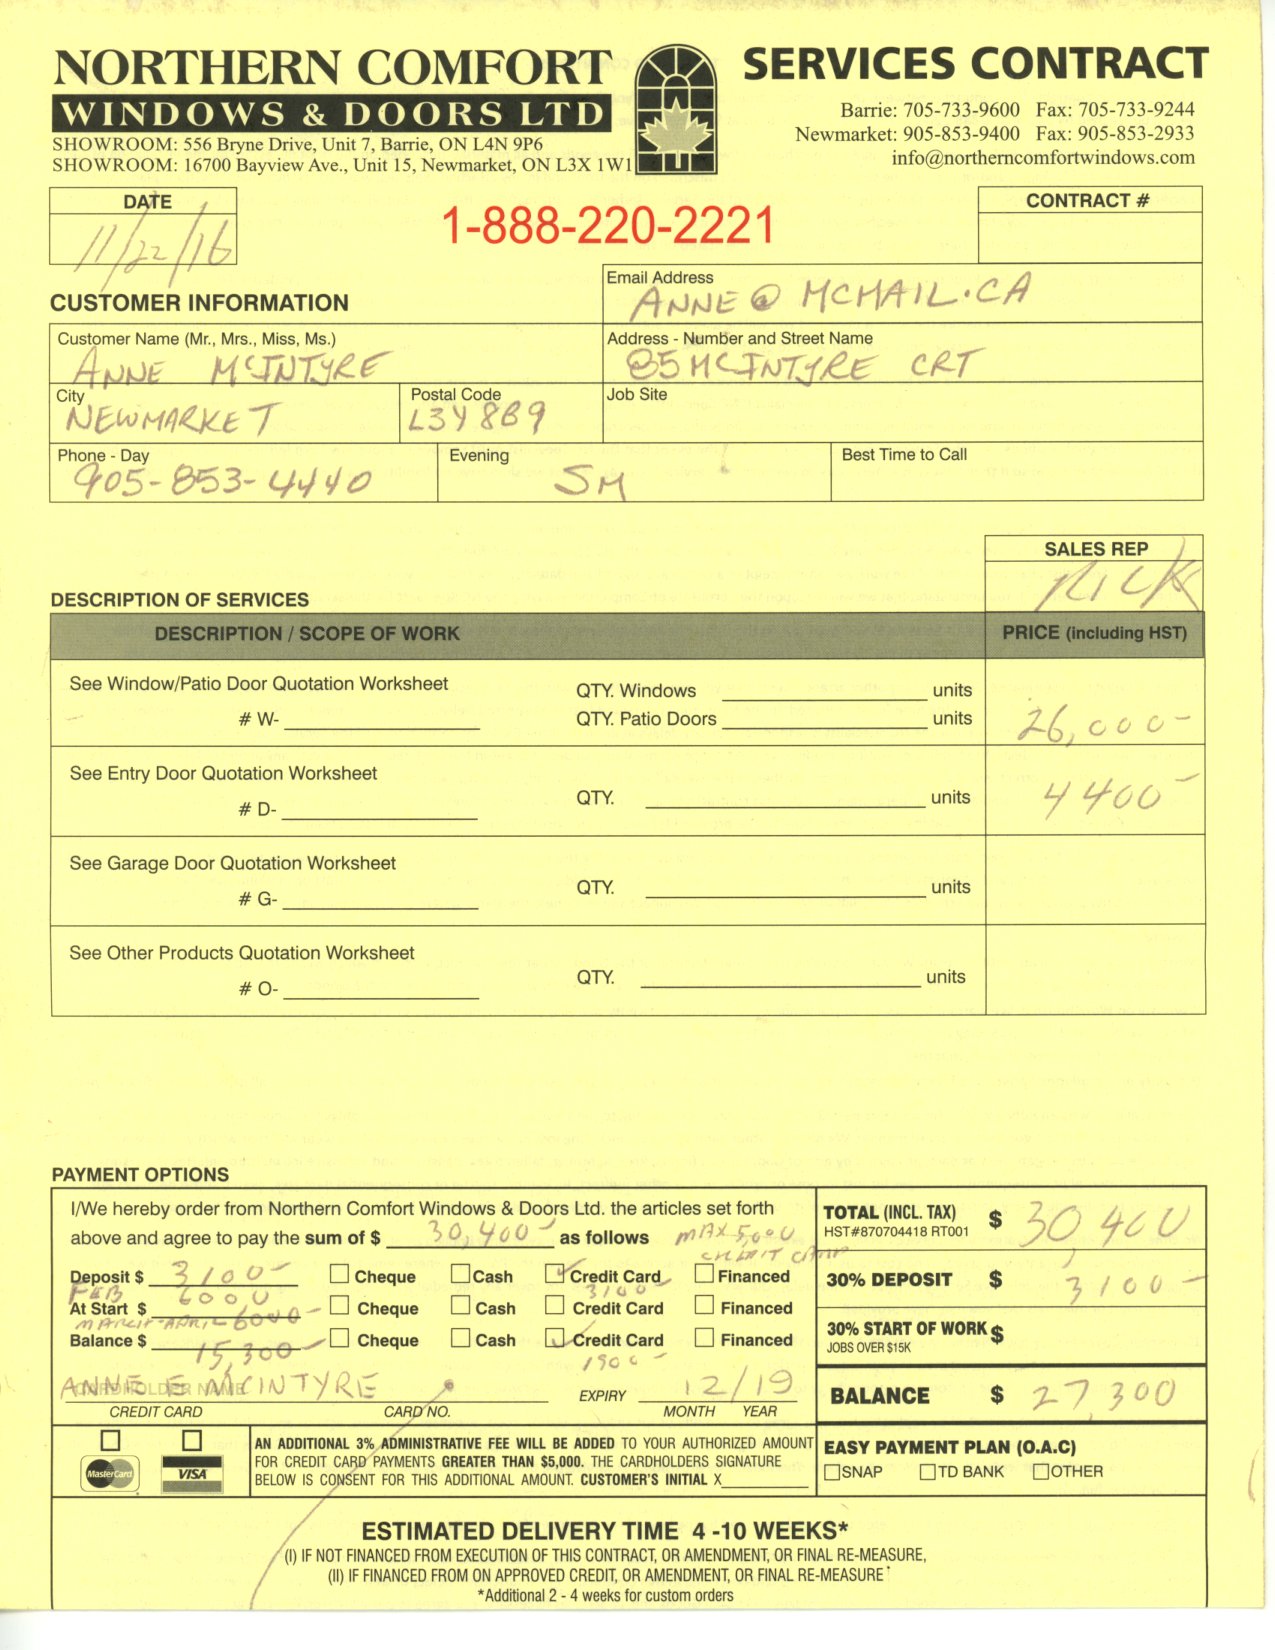 NORTHERN COMFORT
WINDOWS & DOORS LTD
SHOWROOM: 556 Bryne Drive, Unit 7, Barrie, ON L4N 9P6
SHOWROOM: 16700 Bayview Ave., Unit 15, Newmarket, ON L3X 1W1
SERVICES CONTRACT
Barrie: 705-733-9600 Fax: 705-733-9244
Newmarket: 905-853-9400 Fax: 905-853-2933
info@northerncomfortwindows.com
DATE
11/22/16
1-888-220-2221
CONTRACT #
CUSTOMER INFORMATION
Email Address
ANNE@MCMAIL.CA
Customer Name (Mr., Mrs., Miss, Ms.)
ANNE MCINTYRE
Address - Number and Street Name
85 MCINTYRE CRT
City
NEWMARKET
Postal Code
L3Y 8B9
Job Site
Phone - Day
905-853-4440
Evening
SM
Best Time to Call
SALES REP
RICK
DESCRIPTION OF SERVICES
DESCRIPTION / SCOPE OF WORK PRICE (including HST)
See Window/Patio Door Quotation Worksheet QTY. Windows units
# W- QTY. Patio Doors units 26,000-
See Entry Door Quotation Worksheet
# D- QTY. units 4400-
See Garage Door Quotation Worksheet
# G- QTY. units
See Other Products Quotation Worksheet
# O- QTY. units
PAYMENT OPTIONS
I/We hereby order from Northern Comfort Windows & Doors Ltd. the articles set forth
above and agree to pay the sum of $ 30,400- as follows MAX 5,000
CREDIT CARD
Deposit $ 3100- Cheque Cash Credit Card Financed
FEB 6000 3100-
At Start $ Cheque Cash Credit Card Financed
MARCH-APRIL 6000-
Balance $ 15,300- Cheque Cash Credit Card Financed
1900-
TOTAL (INCL. TAX) $ 30,400
HST#870704418 RT001
30% DEPOSIT $ 3100-
30% START OF WORK $
JOBS OVER $15K
BALANCE $ 27,300
CARDHOLDER NAME
ANNE E MCINTYRE
EXPIRY 12/19
CREDIT CARD CARD NO. MONTH YEAR
MasterCard VISA
AN ADDITIONAL 3% ADMINISTRATIVE FEE WILL BE ADDED TO YOUR AUTHORIZED AMOUNT
FOR CREDIT CARD PAYMENTS GREATER THAN $5,000. THE CARDHOLDERS SIGNATURE
BELOW IS CONSENT FOR THIS ADDITIONAL AMOUNT. CUSTOMER'S INITIAL X
EASY PAYMENT PLAN (O.A.C)
SNAP TD BANK OTHER
ESTIMATED DELIVERY TIME 4 -10 WEEKS*
(I) IF NOT FINANCED FROM EXECUTION OF THIS CONTRACT, OR AMENDMENT, OR FINAL RE-MEASURE,
(II) IF FINANCED FROM ON APPROVED CREDIT, OR AMENDMENT, OR FINAL RE-MEASURE
*Additional 2 - 4 weeks for custom orders